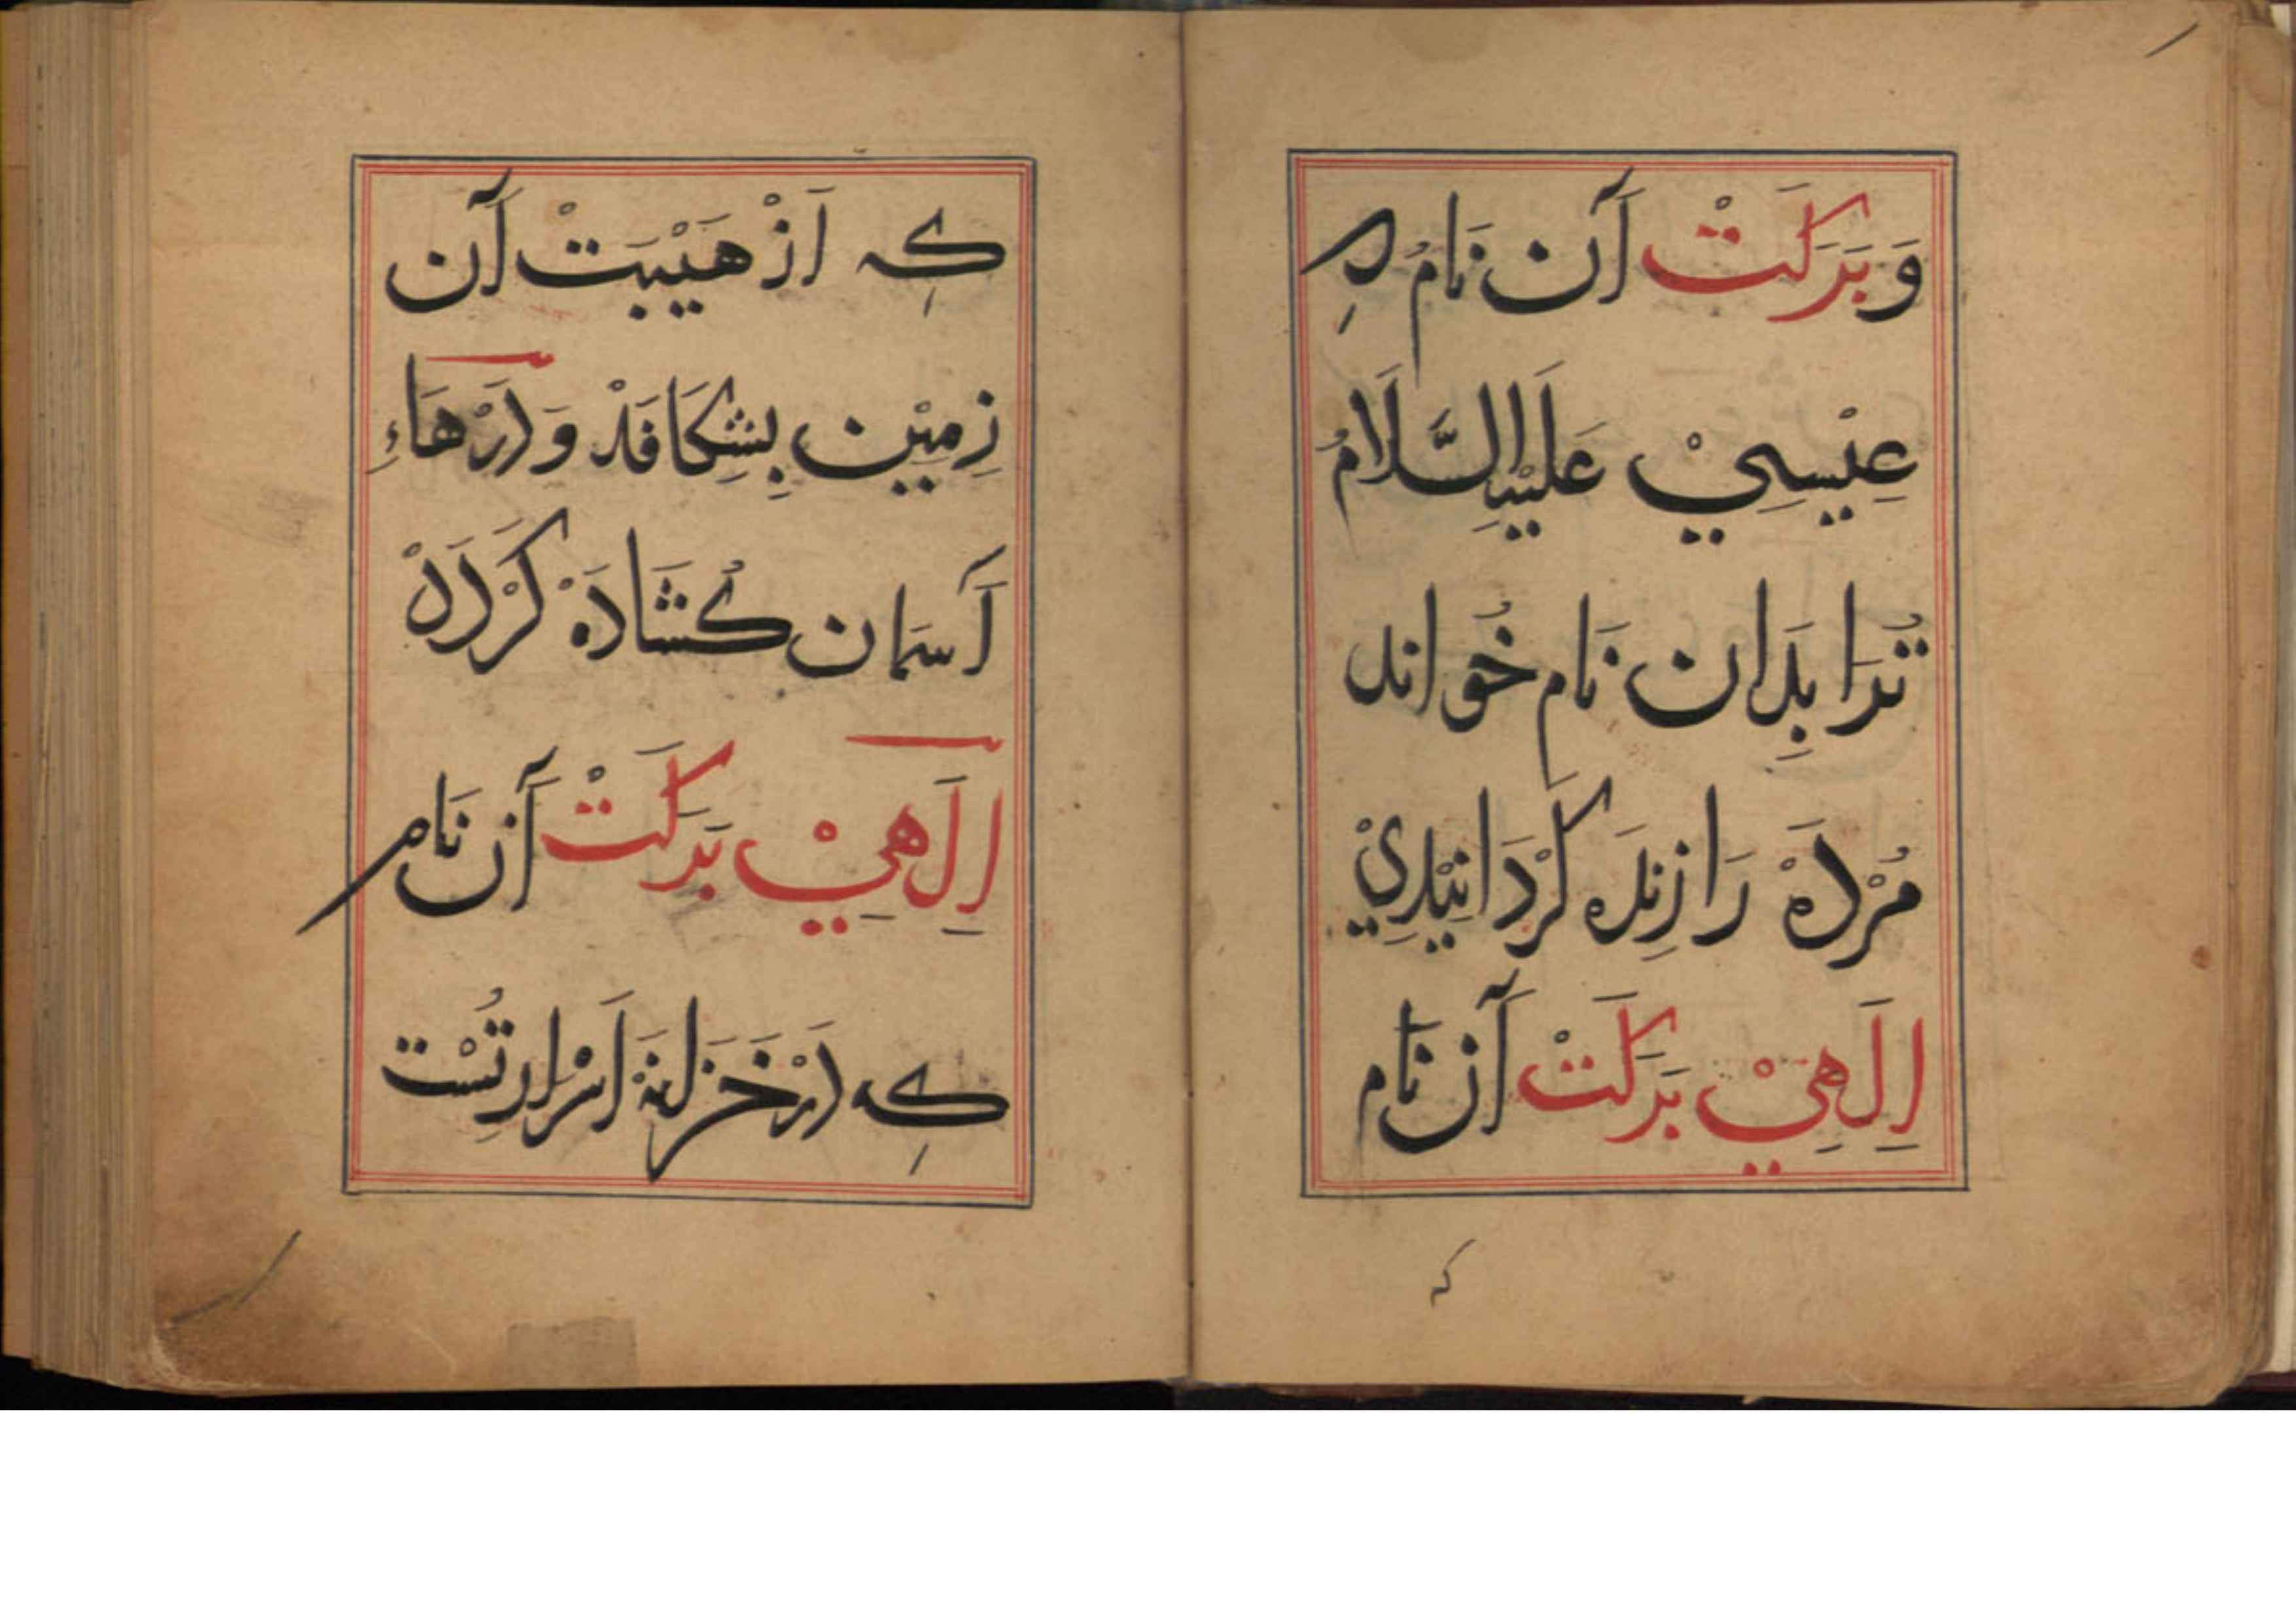 وَ بَرَكَتْ آن نَامْ كِه
عِيْسِيْ عَلَيْهِ السَّلَامُ
تُرَا بِدَان نَام خُوَاند
مُرْدَهْ رَا زِنْدَه كَرْدَانِيْدِيْ
اِلَهِيْ بَرَكَتْ آن نَام
كه
كِه اَزْ هَيْبَتْ آن
زِمِيْن بِشِكَافَدْ وَدَرْهَاءِ
آسمَان كُشَادَهْ كَرْدَدْ
اِلَهِيْ بَرَكَتْ آن نَام
كِه دَرْ خَزَانَهْ اَسْرَارِ تُسْت